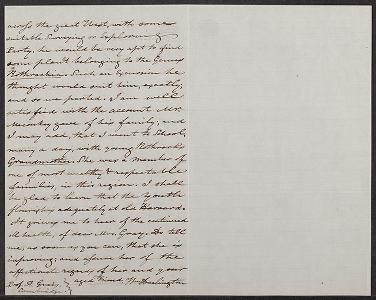 across the great West, with some
suitable Surveying or Exploring
Party, he would be very apt to find
some plant belonging to the Genus
Rothrockia. Such an Excursion he
thought would suit him, exactly,
and so we parted. I am well
satisfied with the account Mr.
gave of his family; and
I may add, that I went to School,
many a day, with young Rothrock's
Grandmother. She was a member of
one of most wealthy & respectable
families, in this region. I shall
be glad to learn that the Youth
flourishes adequately at old Harvard.
It grieves me to hear of the continued
ill health, of dear Mrs. Gray. Do tell
me, as soon as you can, that she is
improving; and assure her of the
affectionate regards of her and your
Prof. A. Gray, aged friend, Wm Darlington
Cambridge.